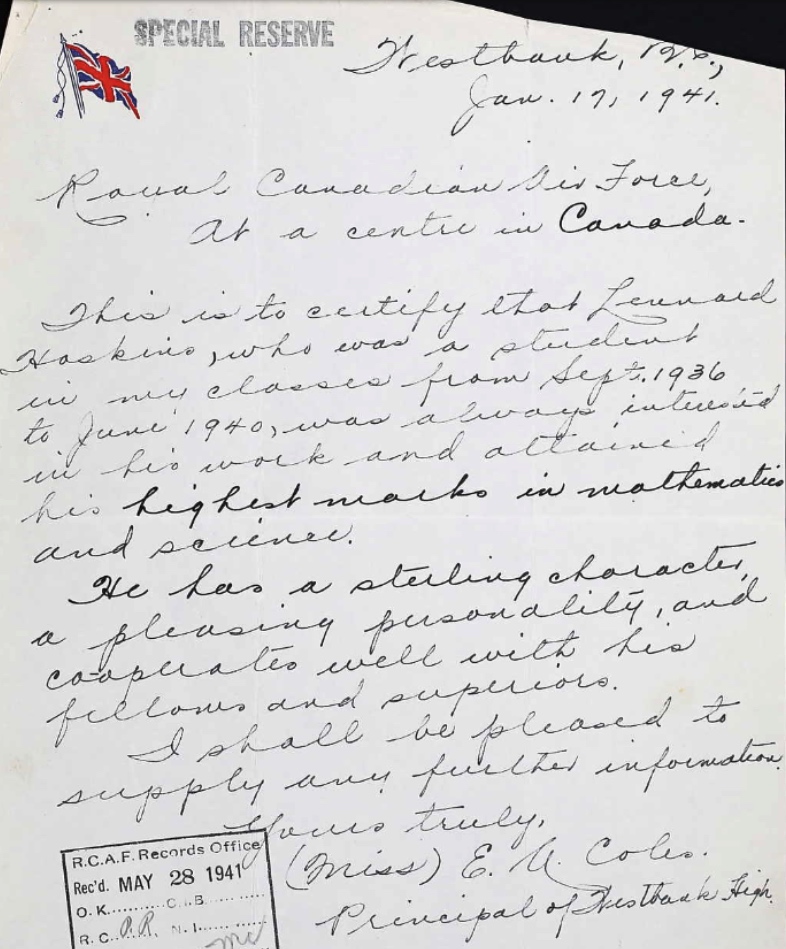 SPECIAL RESERVE
Westbank, B.C.,
Jan. 17, 1941.
Royal Canadian Air Force,
At a centre in Canada.
This is to certify that Lennard
Hoskins, who was a student
in my classes from Sept. 1936
to June 1940, was always interested
in his work and attained
his highest marks in mathematics
and science.
He has a sterling character,
a pleasing personality, and
co-operates well with his
fellows and superiors.
I shall be pleased to
supply any further information.
Yours truly,
(Miss) E. A. Coles.
Principal of Westbank High.
R.C.A.F. Records Office
Rec'd. MAY 28 1941
O. K. C.I.B.
R. C. P.R. N. I.